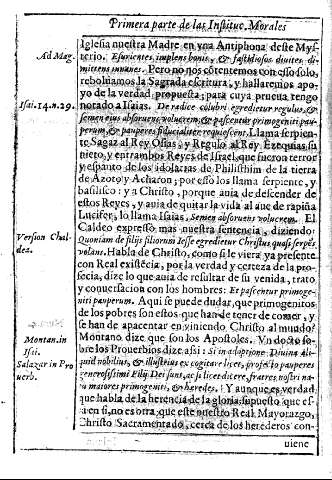 Primera parte de las Instituc. Morales
Iglesia nuestra Madre en vna Antiphona deste Mys-
Ad Mag.
terio. Esurientes impleuit bonis, & fastidiosos diuites di-
mittens inanes. Pero no nos cõtentemos con esso solo,
reboluamos la Sagrada escritura, y hallaremos apo-
yo de la verdad propuesta; para cuya prueua tengo
Isai. 14. n. 29.
notado a Isaias. De radice colubri egredietur regulus, &
semen eius absoruens volucrem, & pascentur primogeniti pau-
perum, & pauperes fiducialiter requiescent. Llama serpien-
te Sagaz al Rey Osias, y Regulo al Rey Ezequias su
nieto, y entrambos Reyes de Israel, que fueron terror
y espanto de los idolatras de Philisthim de la tierra
de Azoto y Acharon; por esso los llama serpiente, y
basilisco: y a Christo, porque auia de descender de
estos Reyes, y auia de quitar la vida al aue de rapiña
Lucifer, lo llama Isaias, Semen absoruens volucrem. El
Version Chal-
dea.
Caldeo expressò mas nuestra sentencia, diziendo:
Quoniam de filijs filiorum Iesse egredietur Christus quasi serpẽs
volans. Habla de Christo, como si le viera ya presente
con Real existẽcia, por la verdad y certeza de la pro-
fecia, dize lo que auia de resultar de su venida, trato
y conuersacion con los hombres: Et pascentur primoge-
niti pauperum. Aqui se puede dudar, que primogenitos
de los pobres son estos que han de tener de comer, y
se han de apacentar en viniendo Christo al mundo?
Montan. in
Isai.
Montano dize que son los Apostoles. Vn docto so-
Salazar in Pro
uerb.
bre los Prouerbios dize assi: Si in adoptione Diuina ali-
quid nobilius, & illustrius excogitare licet, profecto pauperes
generosissimi Filij Dei sunt, ac si licet dicere, fratres nostri na-
tu maiores primogeniti, & haeredes. Y aunque es verdad
que habla de la herencia de la gloria supuesto que es-
sa en si, no es otra que este nuestro Real Mayorazgo,
Christo Sacramentado, cerca de los herederos con-
uiene